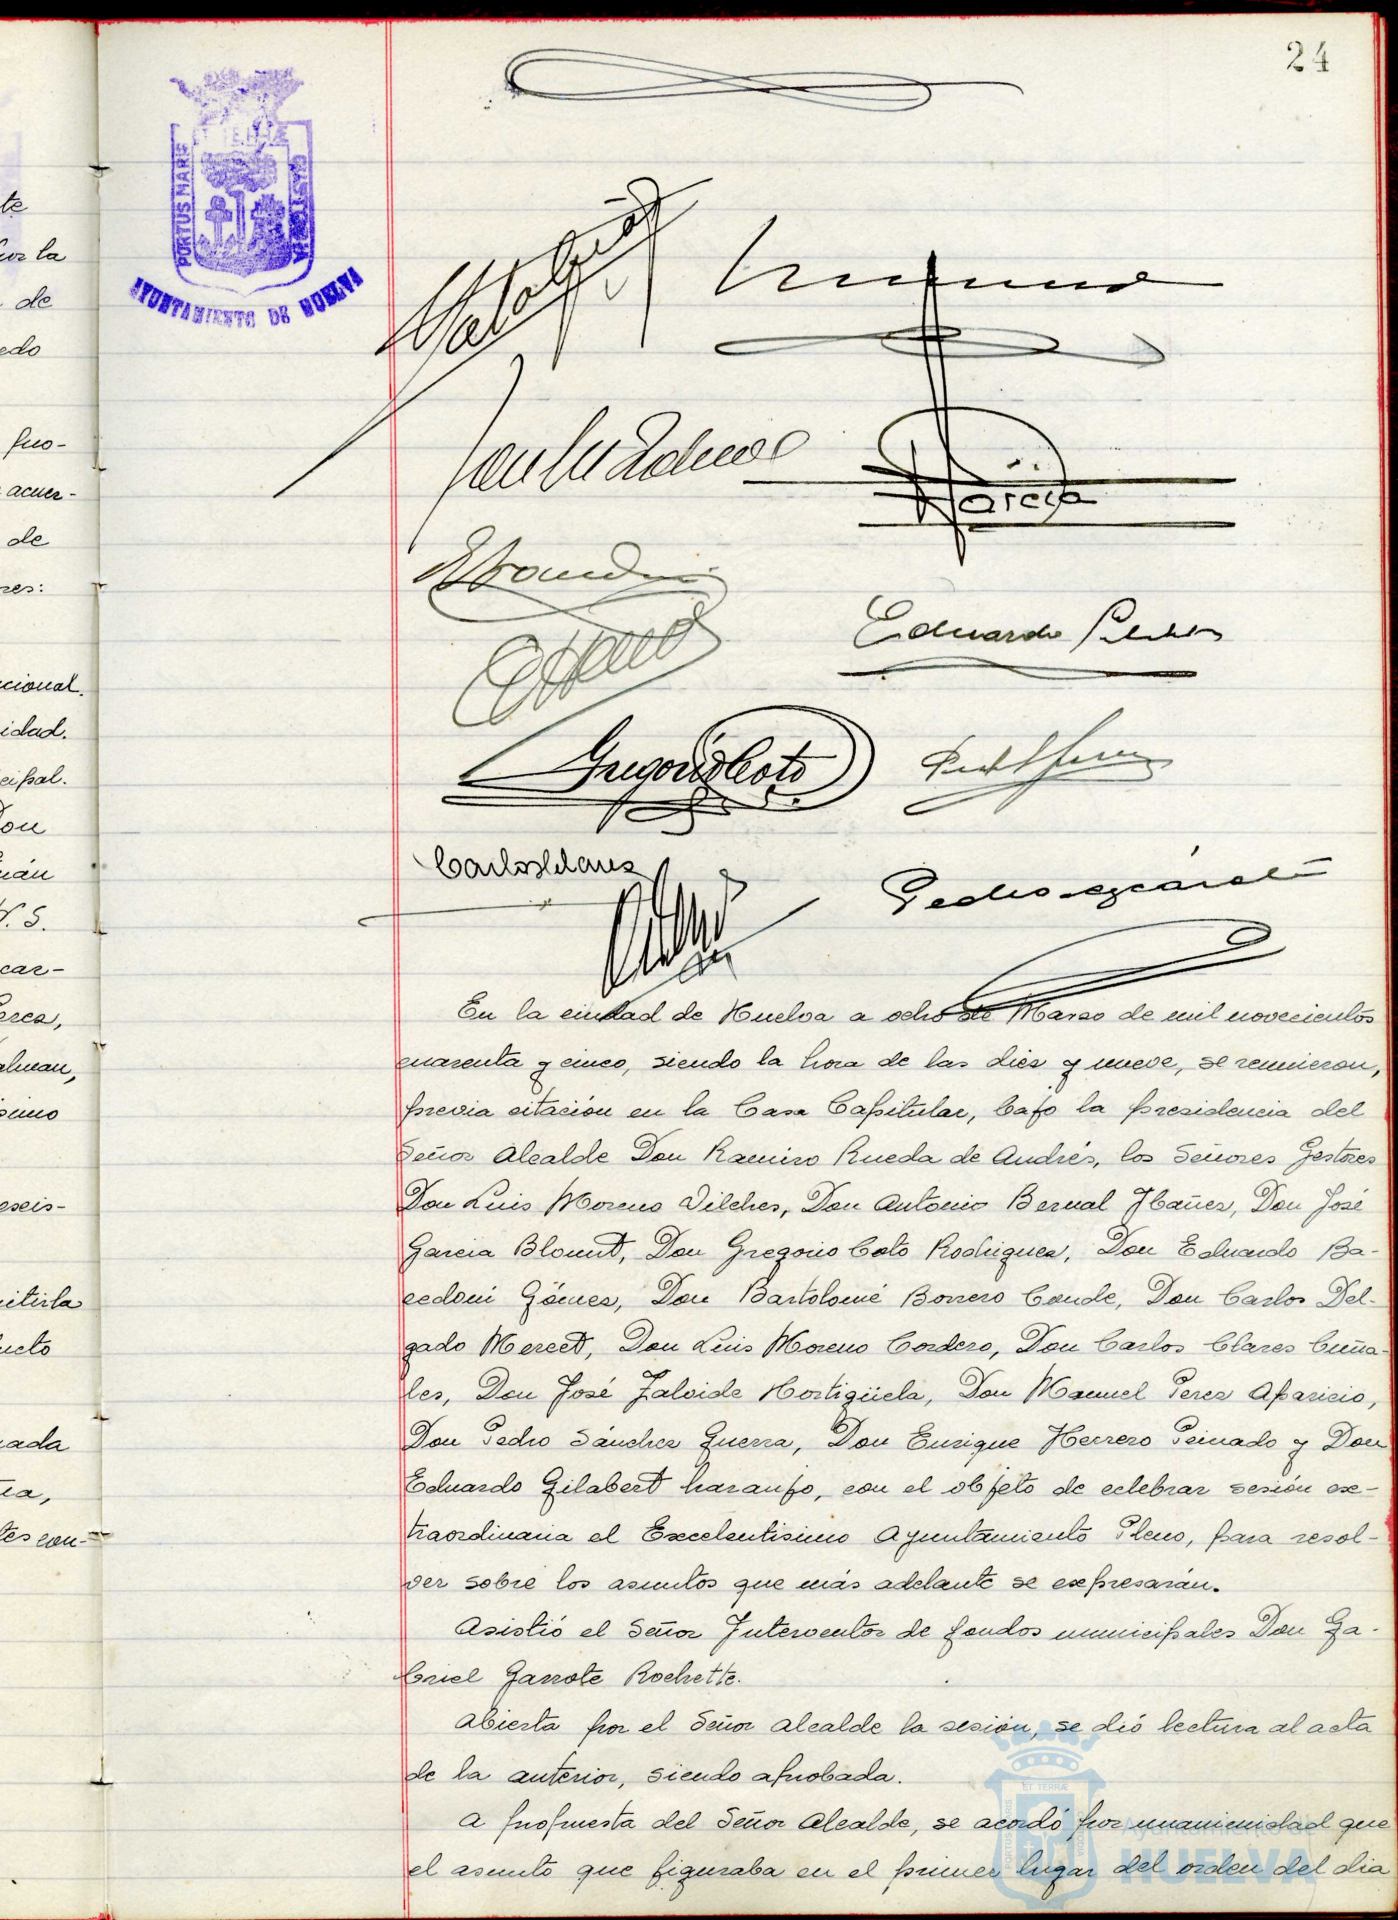 24
PORTUS MARIS
ET TERRÆ
AYUNTAMIENTO DE HUELVA
García
Eduardo
Gregorio Coto
Carlos Clares
Pedro
En la ciudad de Huelva a ocho de Marzo de mil novecientos
cuarenta y cinco, siendo la hora de las diez y nueve, se reunieron,
previa citación en la Casa Capitular, bajo la presidencia del
Señor Alcalde Don Ramiro Rueda de Andrés, los Señores Gestores
Don Luis Moreno Vilches, Don Antonio Bernal Ibañez, Don José
Garcia Blount, Don Gregorio Coto Rodriguez, Don Eduardo Ba-
cedoni Gómez, Don Bartolomé Borrero Conde, Don Carlos Del-
gado Mercet, Don Luis Moreno Cordero, Don Carlos Clares Cuña-
les, Don José Zalvide Hortigüela, Don Manuel Perez Aparicio,
Don Pedro Sánchez Guerra, Don Enrique Herrero Peinado y Don
Eduardo Gilabert Naranjo, con el objeto de celebrar sesión ex-
traordinaria el Excelentisimo Ayuntamiento Pleno, para resol-
ver sobre los asuntos que más adelante se expresarán.
Asistió el Señor Interventor de fondos municipales Don Ga-
briel Garrote Rochette.
Abierta por el Señor Alcalde la sesión, se dió lectura al acta
de la anterior, siendo aprobada.
A propuesta del Señor Alcalde, se acordó por unanimidad que
el asunto que figuraba en el primer lugar del orden del dia
te
por la
de
edo
pro-
acuer-
de
res:
cional.
idad.
cipal.
Don
uán
V. S.
car-
erez,
eseis-
itirla
ucto
ada
ia,
tes con-
Ayuntamiento de
HUELVA